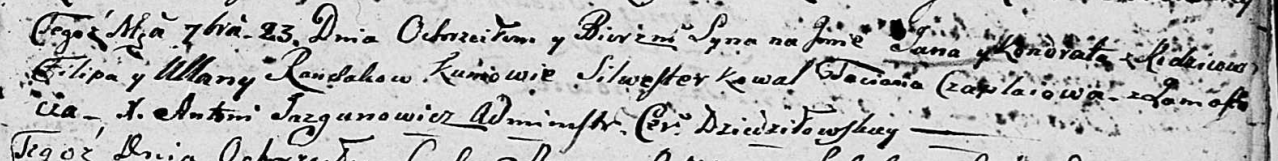 Tegoż Mca 7bra 23. Dnia Ochrzciłem y Bierzm Syna na Jmie Jana y Kondrata z Rodzicow
Filipa y Ullany Randakow Kumowie Silwester Kowal Taciana Czaplaiowa z Zamość
cia X. Antoni Jazgunowicz Adminstr. Cer. Dziedziłowskiey
Tegoż Dnia